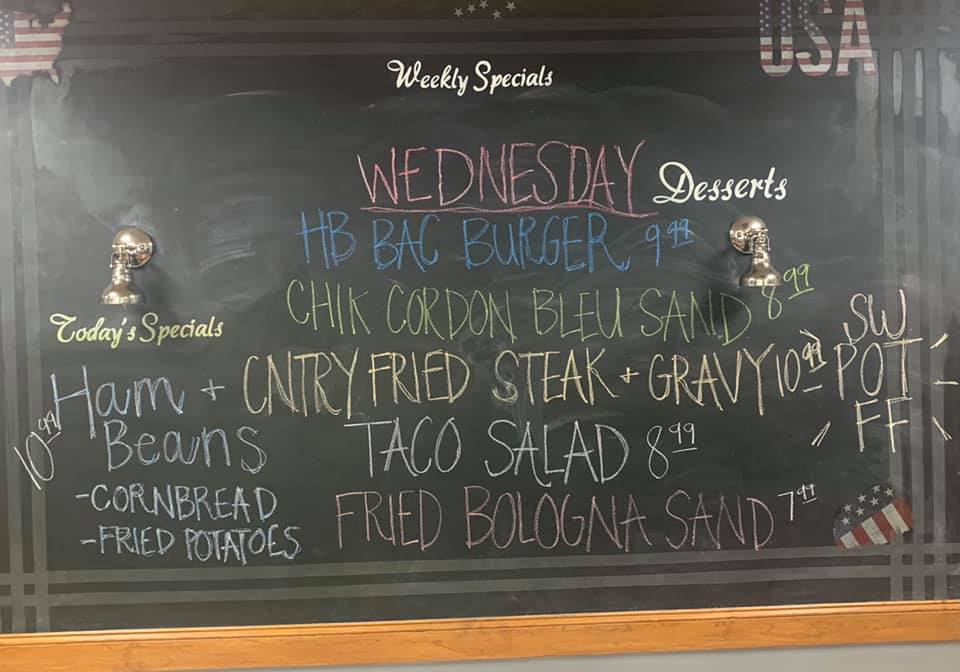 USA
Weekly Specials
WEDNESDAY
Desserts
HB BAC BURGER 9.99
CHIK CORDON BLEU SAND 8.99
CNTRY FRIED STEAK + GRAVY 10.99
TACO SALAD 8.99
FRIED BOLOGNA SAND 7.99
Today's Specials
Ham +
Beans
10.99
-CORNBREAD
-FRIED POTATOES
SW
POT
FF